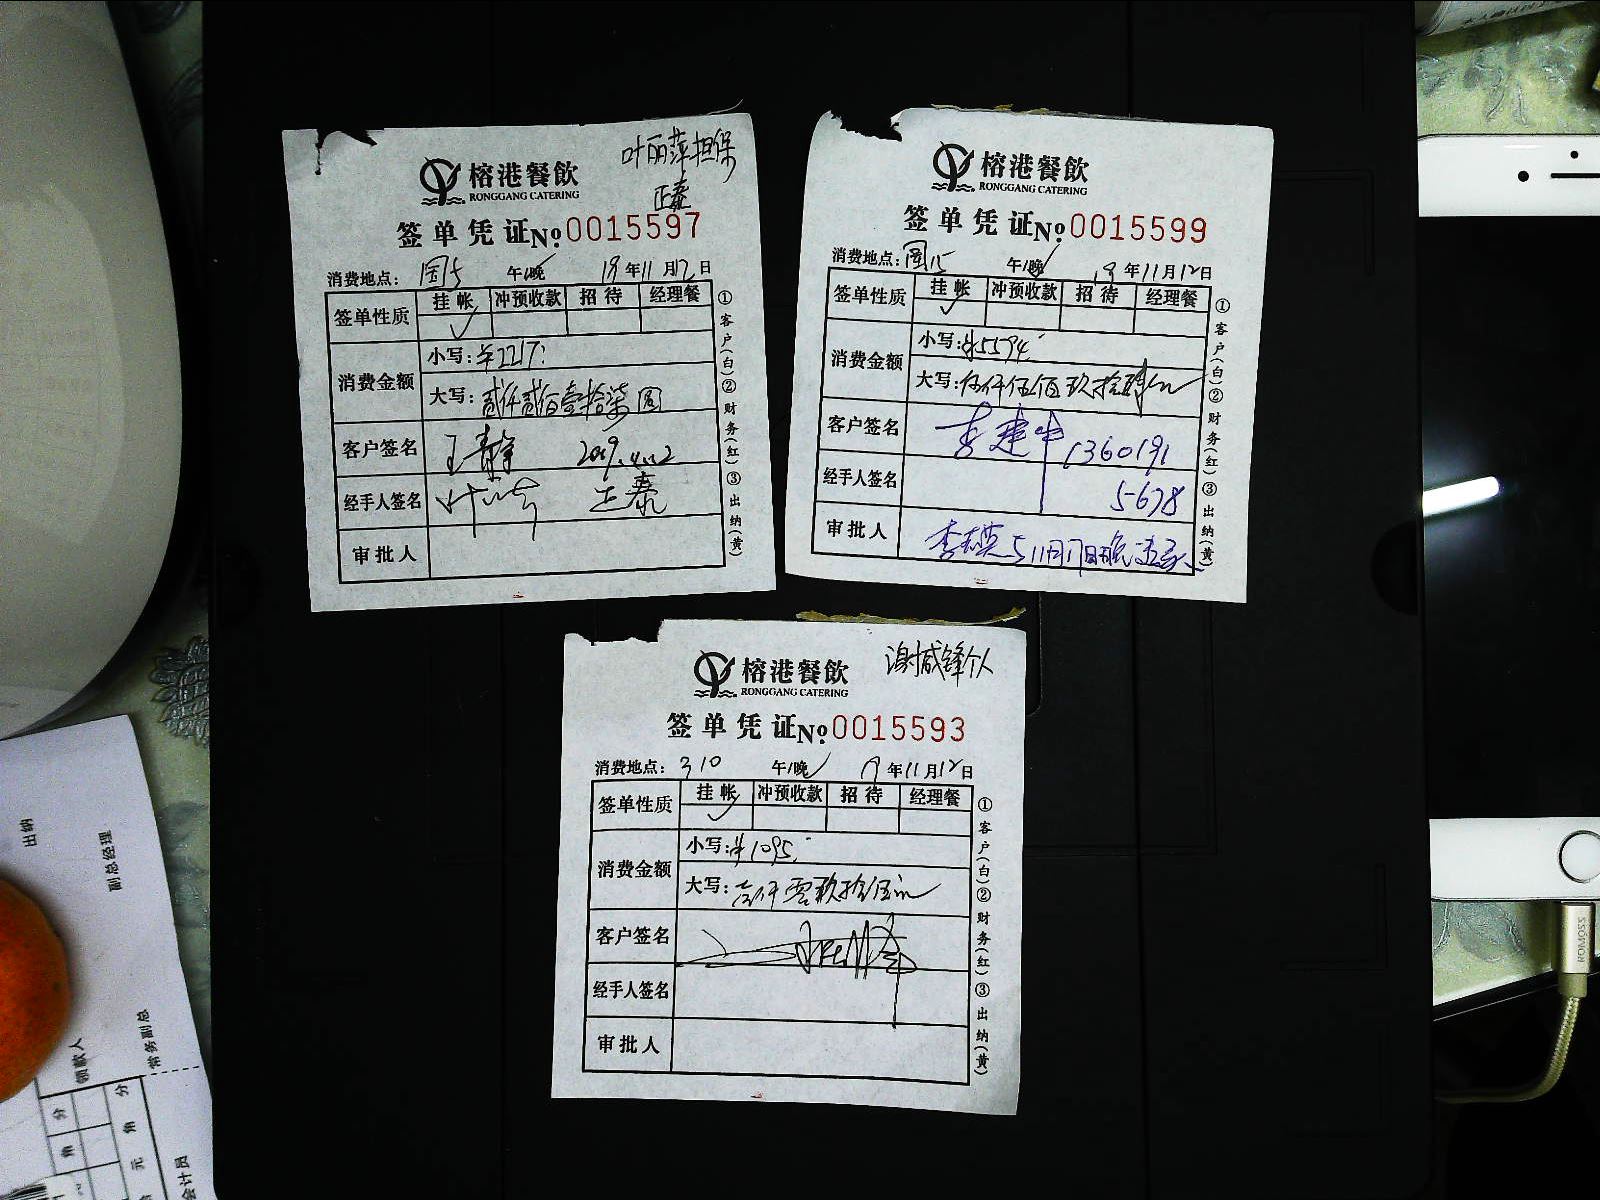 叶丽萍担保
正泰
榕港餐飲
RONGGANG CATERING
签单凭证No.0015597
消费地点: 午/晚 19年11月12日
签单性质 挂帐 冲预收款 招待 经理餐
消费金额 小写:¥2217.
大写:贰仟贰佰壹拾柒圆
客户签名 王静 2019.11.12
经手人签名 正泰
审批人
①客户(白)②财务(红)③出纳(黄)
榕港餐飲
RONGGANG CATERING
签单凭证No.0015599
消费地点: 午/晚 19年11月12日
签单性质 挂帐 冲预收款 招待 经理餐
消费金额 小写:¥5594.
大写:伍仟伍佰玖拾肆元
客户签名 1360191
经手人签名 5678
审批人
①客户(白)②财务(红)③出纳(黄)
个人
榕港餐飲
RONGGANG CATERING
签单凭证No.0015593
消费地点: 310 午/晚 年11月12日
签单性质 挂帐 冲预收款 招待 经理餐
消费金额 小写:¥1095.
大写:壹仟零玖拾伍元
客户签名
经手人签名
审批人
①客户(白)②财务(红)③出纳(黄)
出纳
副总经理
领款人
常务副总
分
角
分
角
元
会计员
ROMOSS